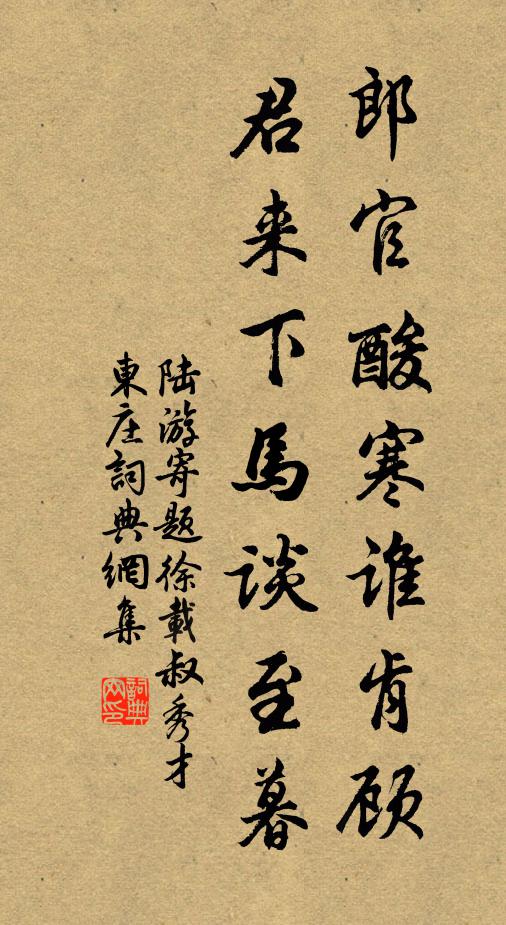 郎官酸寒谁肯顾
君来下馬谈至暮
陆游寄题徐載叔秀才
東庄詞典網集
詞典
网印